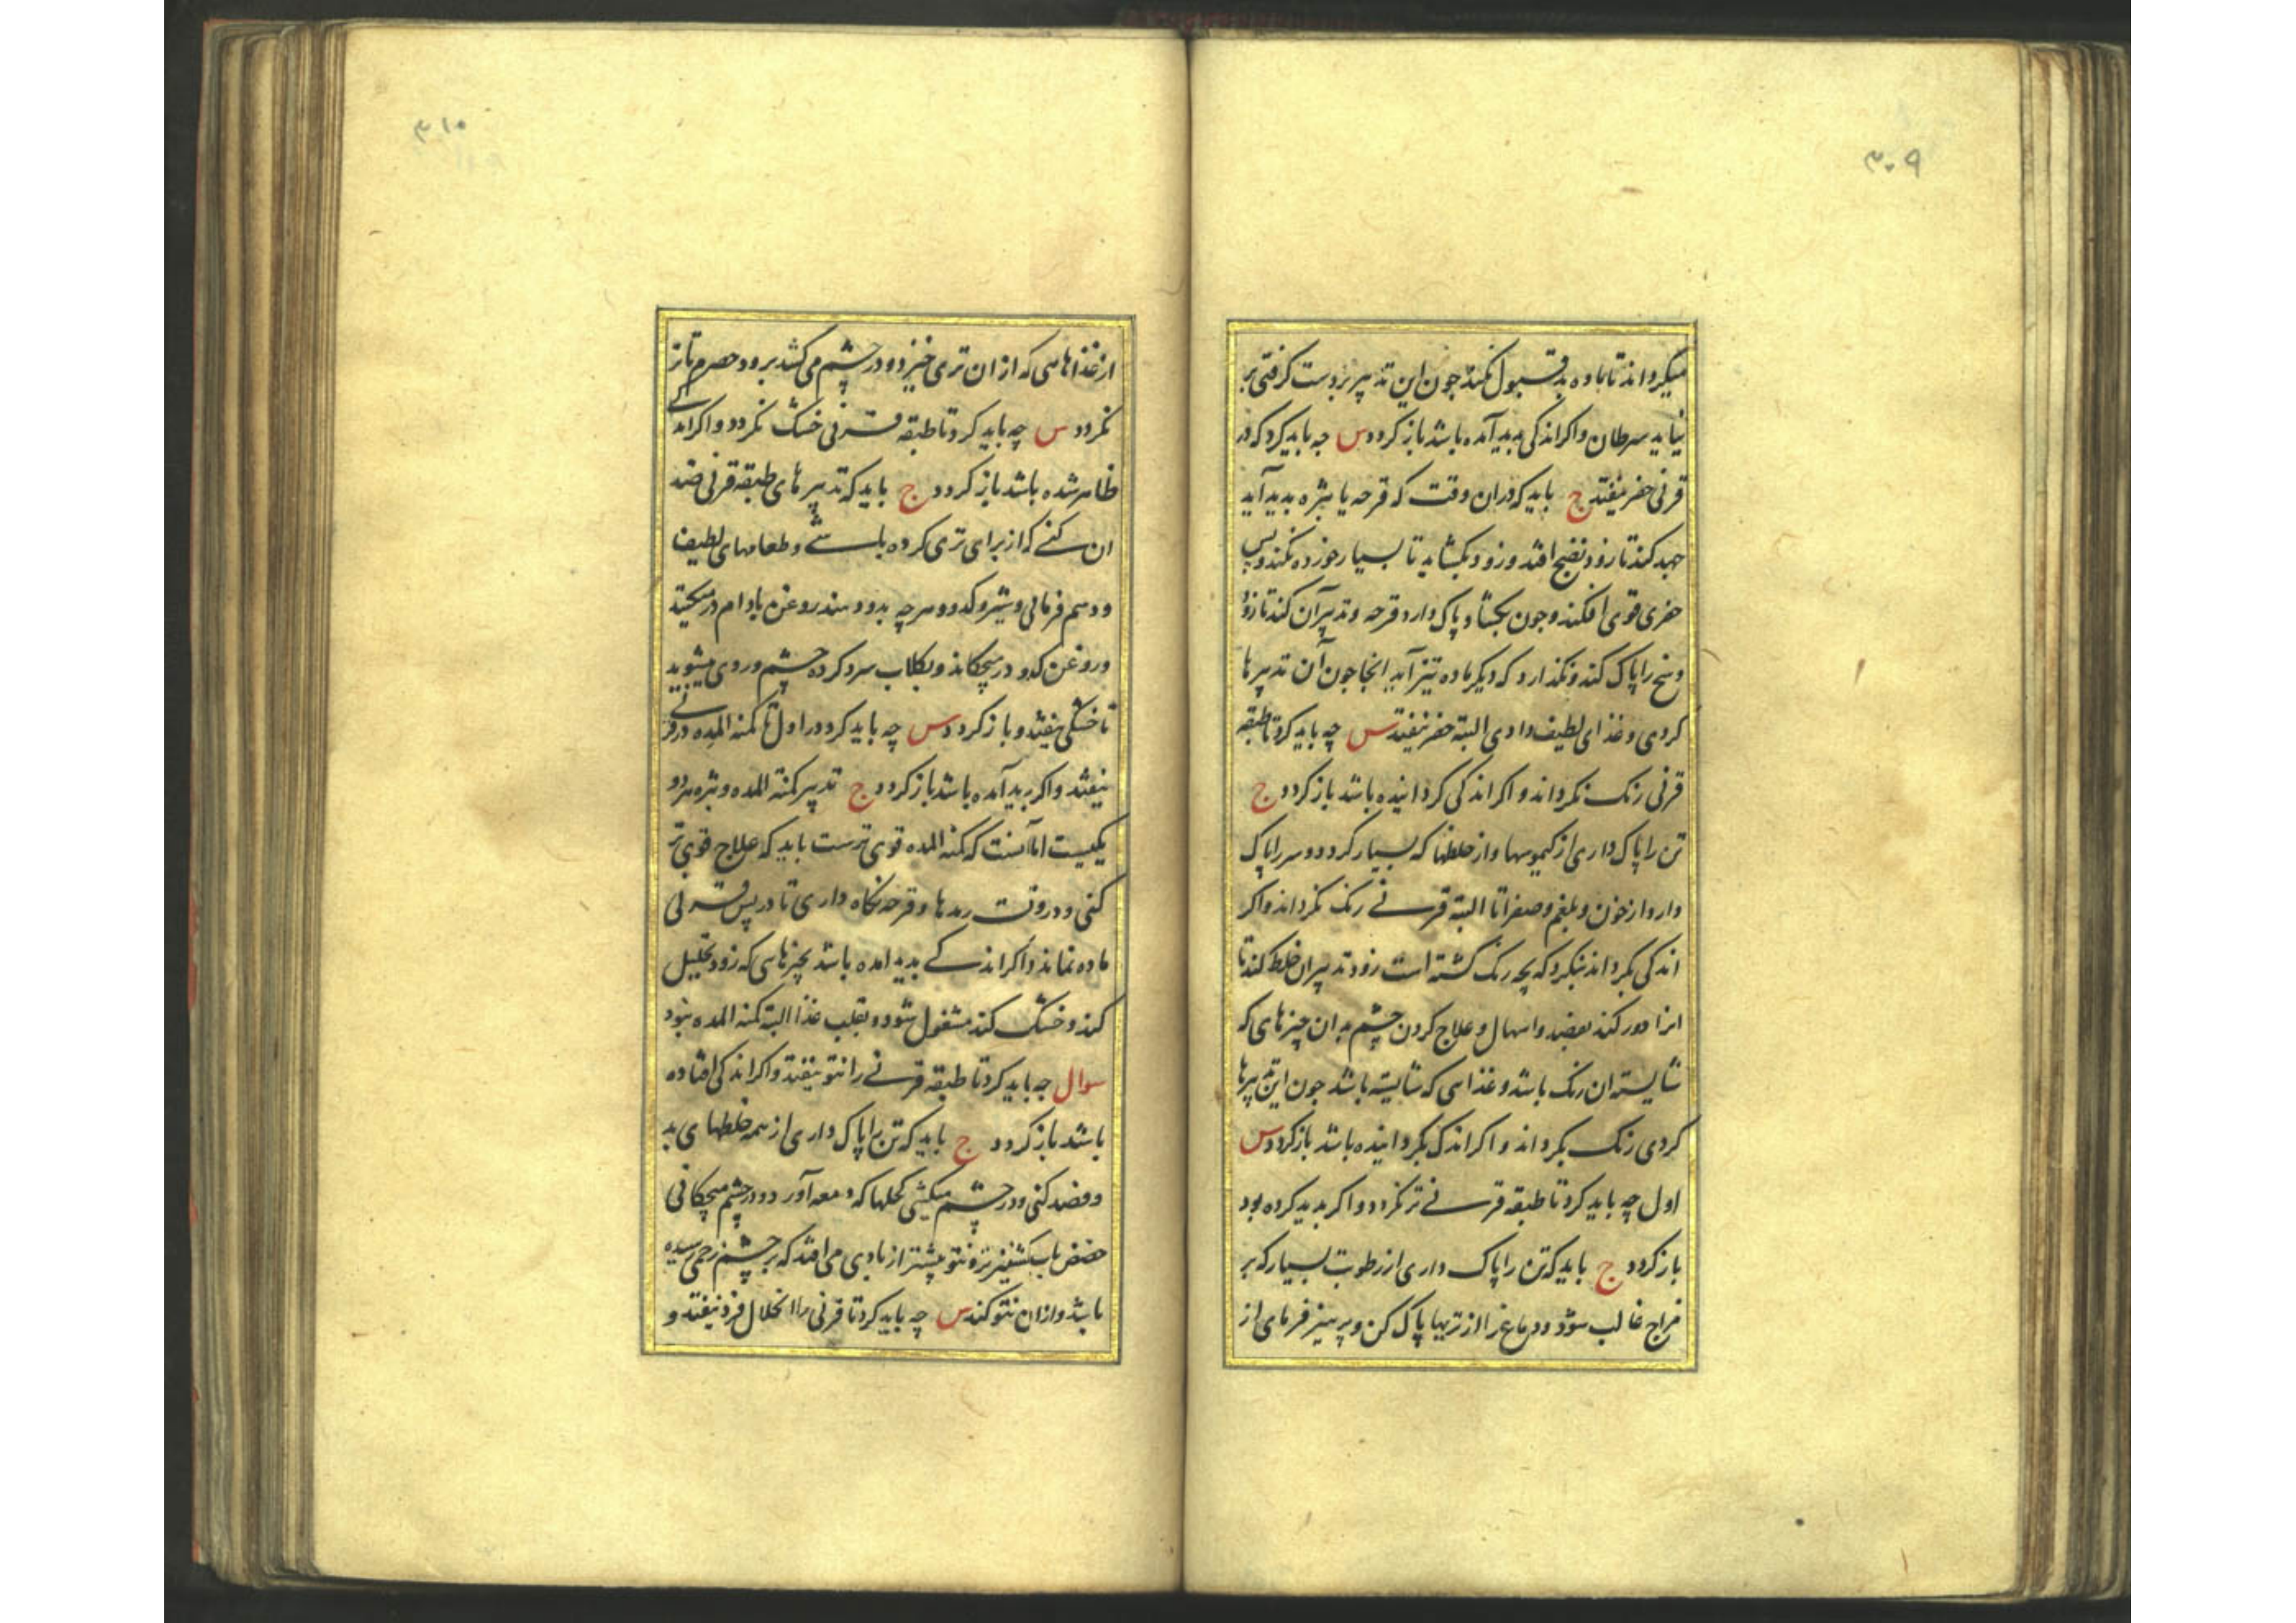 ۳۰۹
میکرداند تا ماده بد قبول نکند جون این تدبیر بر دست کرفتی بر
نیاید سرطان واکر اندکی بدید آمده باشد باز کردد س جه باید کرد که در
قرنی حفر نیفتد ج باید که دران وقت که قرحه یا بثره بدید آید
جهد کند تا زود نضج افتد و زود بکشاید تا بسیار خورده نکند و پس
حفری قوی افکند وجون بکشاد پاک دارد قرحه و تدبیر آن کند تا زود
وسخ را پاک کند و نکذارد که دیکر ماده تیز آید انجا جون آن تدبیرها
کردی و غذای لطیف دادی البته حفر نیفتد س چه باید کرد تا طبقه
قرنی رنک نکرداند و اکر اندکی کردانیده باشد باز کردد ج
تن را پاک داری از کیموسها و از خلطها که بسیار کردد و سر را پاک
دارد از خون و بلغم و صفرا تا البته قرنے رنک نکرداند واکر
اندکی بکرداند بنکرد که بچه رنک کشته است زود تدبیر ان خلط کند تا
انرا دور کند بفصد و اسهال و علاج کردن چشم بدان چیزهای که
شایسته ان رنک باشد و غذاهی که شایسته باشد جون این تدبیرها
کردی رنک بکرداند و اکر اندک بکردانیده باشد باز کردد س
اول چه باید کرد تا طبقه قرنے تر نکردد و اکر بدید کرده بود
باز کردد ج باید که تن را پاک داری از رطوبت بسیار که بر
مزاج غالب شود و دماغ را از تریها پاک کن و پرهیز فرمای از
۳۱۰
از غذاهاهی که از ان تری خیزد و در چشم می کشد برود حصرم تا تر
نکردد س چه باید کرد تا طبقه قرنی خشک نکردد و اکر اندکے
ظاهر شده باشد باز کردد ج باید که تدبیرهای طبقه قرنی ضد
ان کنے که از برای تری کرده باشے و طعامهای لطیف
و دسم فرمائی و شیر و کدو و هرچه بدو دهند روغن بادام در میکند
و روغن کدو در میچکاند و بکلاب سرد کرده چشم و روی میشوید
تا خشکی نیفتد و باز کردد س چه باید کرد در اول تا کمنة المده در قرنے
نیفتد و اکر بدید آمده باشد باز کردد ج تدبیر کمنة المده و بثره هردو
یکیست اما آنست که کمنة المده قوی ترست باید که علاج قوی تر
کنی و در وقت رمدها و قرحه نکاه داری تا در پس قرنی
ماده نماند و اکر اندکے بدید امده باشد بچیزهاهی که زود تحلیل
کند و خشک کند مشغول شود و بقلب غذا البته کمنة المده نبود
سوال جه باید کرد تا طبقه قرنے را نتو نیفتد واکر اندکی افتاده
باشد باز کردد ج باید که تن را پاک داری از همه خلطهای بد
و فصد کنی و در چشم میکشی کحلها که دمعه آورد و در چشم میچکانی
حضض باب کشنیز تر و نتو پیشتر از بادی می افتد که بر چشم زخمی رسیده
باشد و ازان نتو کند س چه باید کرد تا قرنی را انحلال فرد نیفتد و